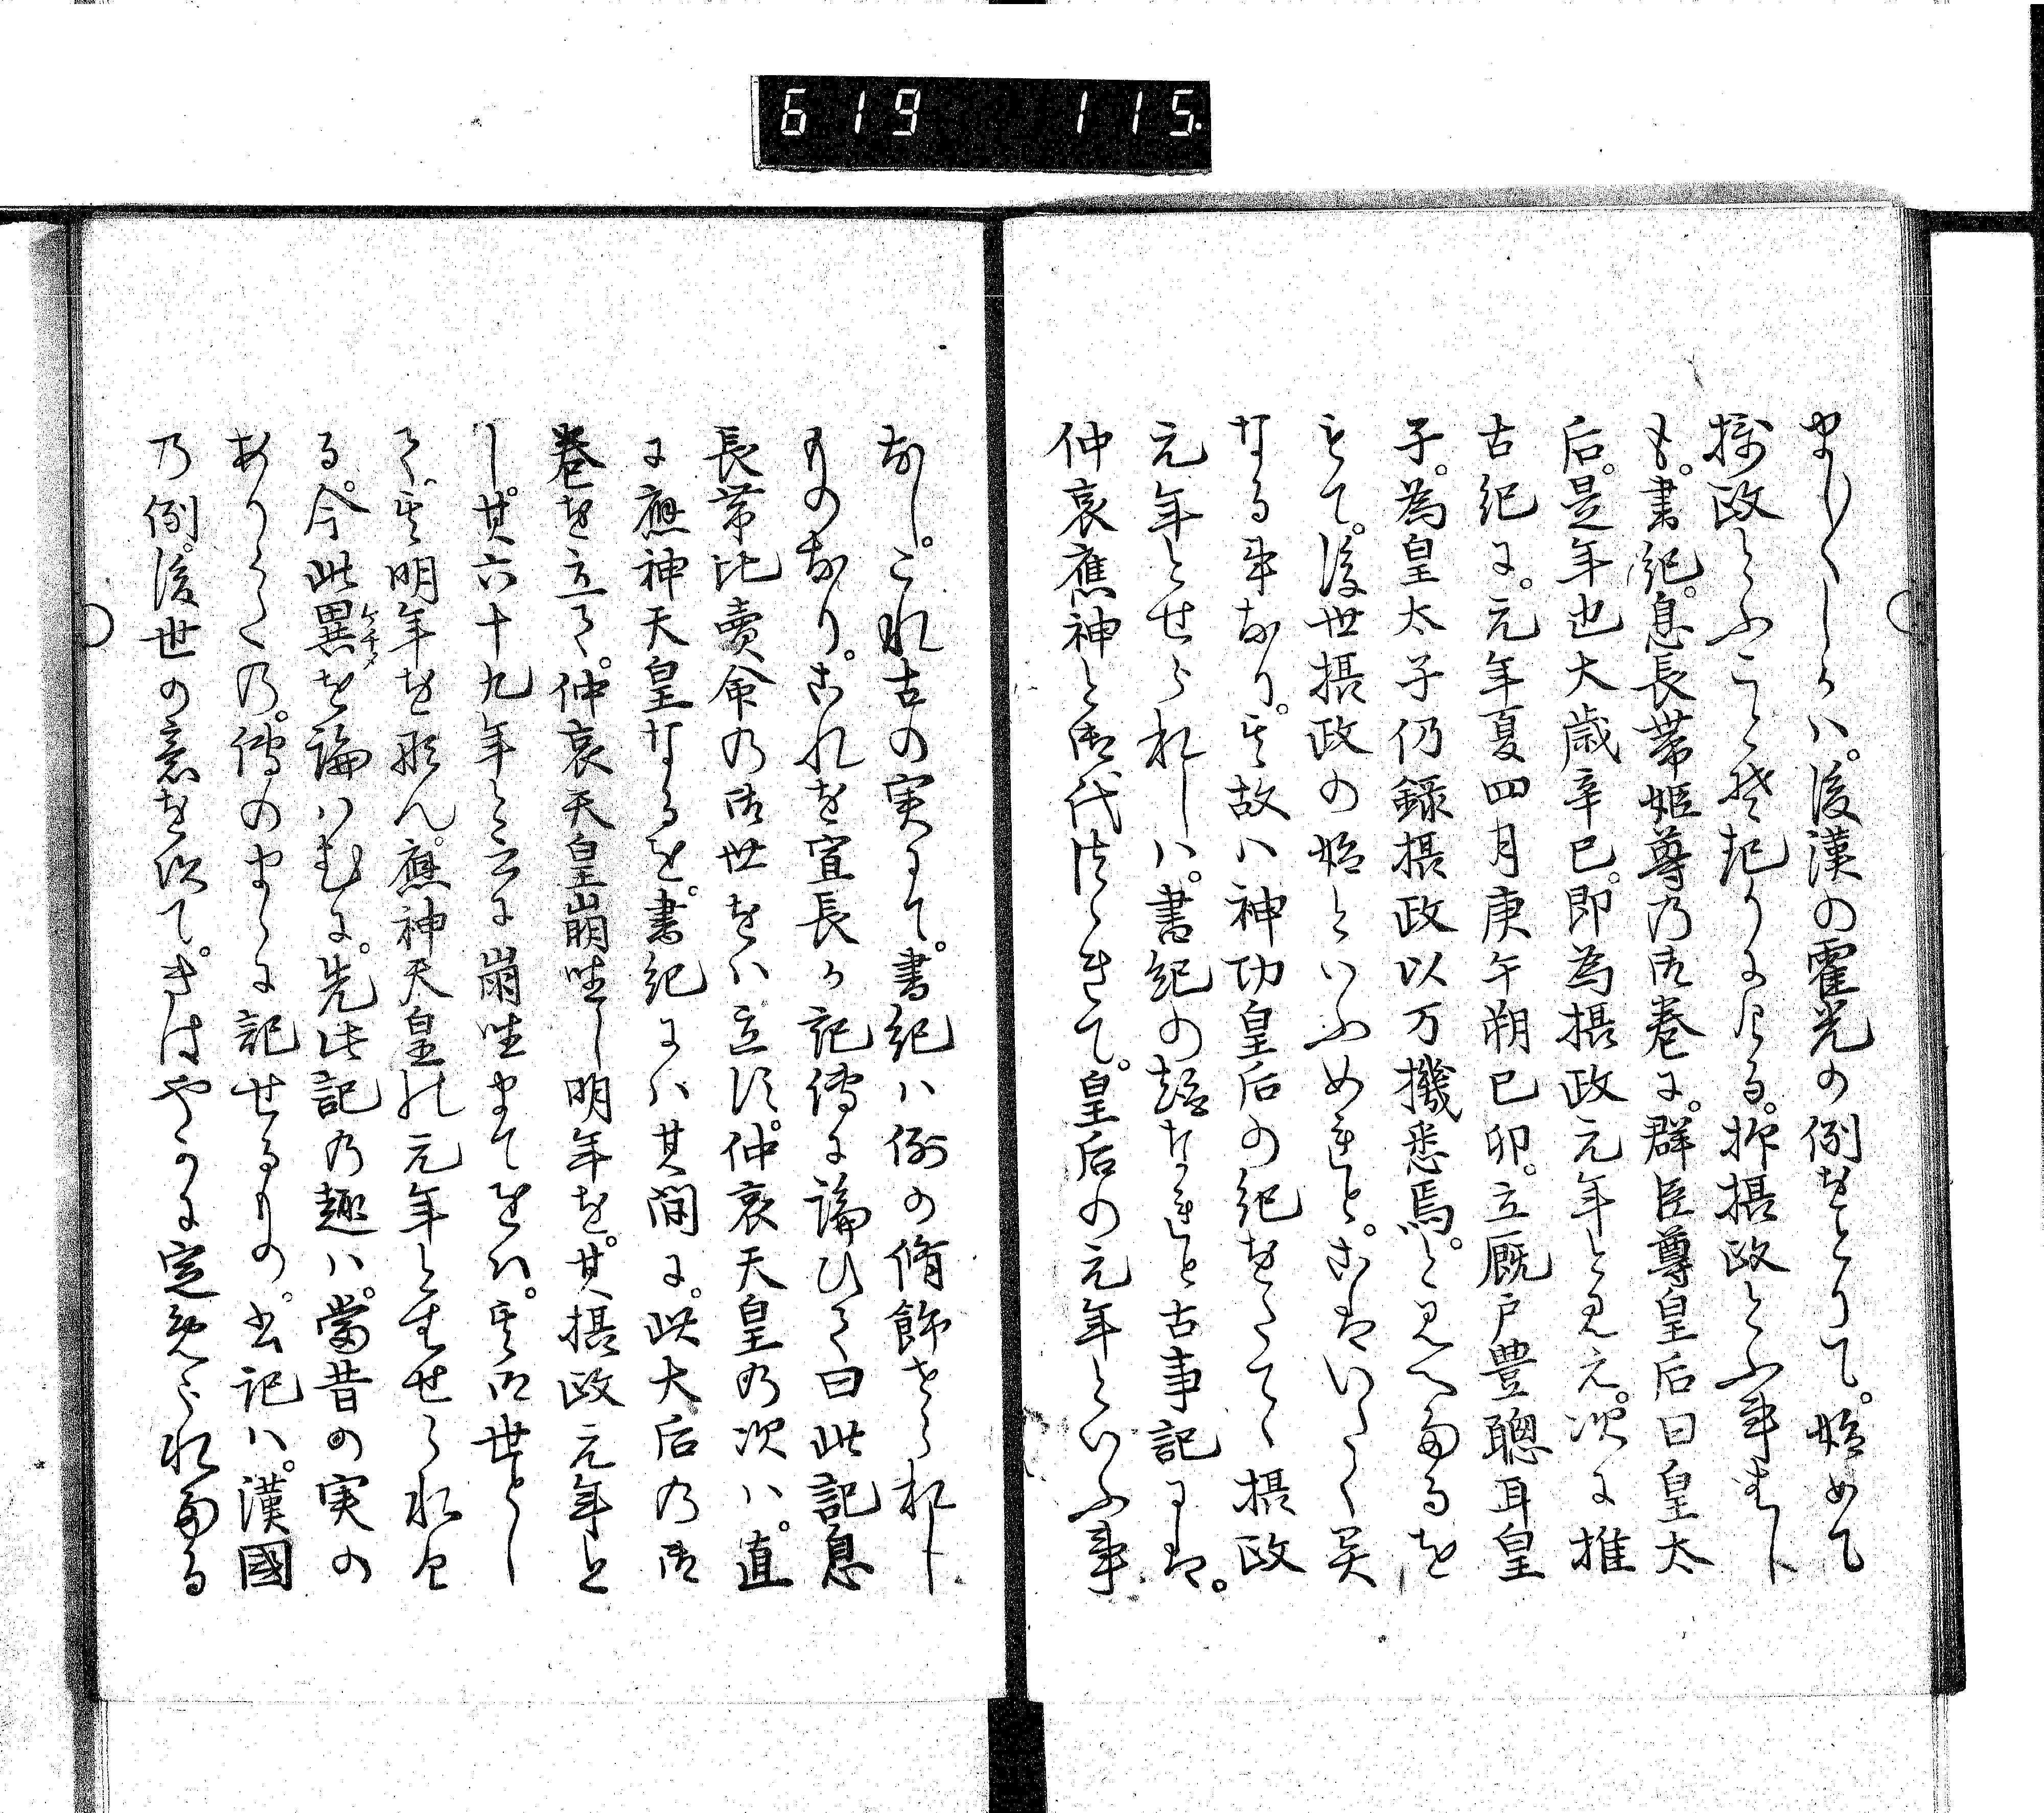 619 115.
まし〳〵しかハ。後漢の霍光の例をとりて。始めて
摂政といふこと起りにける。抑摂政といふ事はし
も。書紀。息長帯姫尊乃御巻に。群臣尊皇后曰皇太
后。是年也大歳辛巳。即為摂政元年と見え。次に推
古紀に。元年夏四月庚午朔己卯。立厩戸豊聰耳皇
子。為皇太子仍録摂政以万機悉焉。と見へたるを
もて。後世摂政の始といふめれと。こはいたく異
なる事なり。其故ハ神功皇后の紀をたてゝ摂政
元年とせられしハ。書紀の趣なれと古事記には。
仲哀應神と御代つゝきて。皇后の元年といふ事
なし。これ古の実にて。書紀ハ例の脩飾せられし
ものなり。これを宣長か記傳に論ひて曰此記息
長帯比賣命乃御世をハ立す。仲哀天皇乃次ハ。直
に應神天皇なるを。書紀にハ其間に。此大后乃御
巻を立て。仲哀天皇崩坐し明年を。其摂政元年と
し。其六十九年と云に崩坐まてをハ。其御世とし
て。其明年を那ん。應神天皇乃元年とはせられけ
る。今此異を論ハむに。先此記乃趣ハ。當昔の実の
ケチメ
ありかた乃。傳のまゝに記せるもの。書記ハ。漢國
乃例。後世の意を以て。きはやかに定められたる